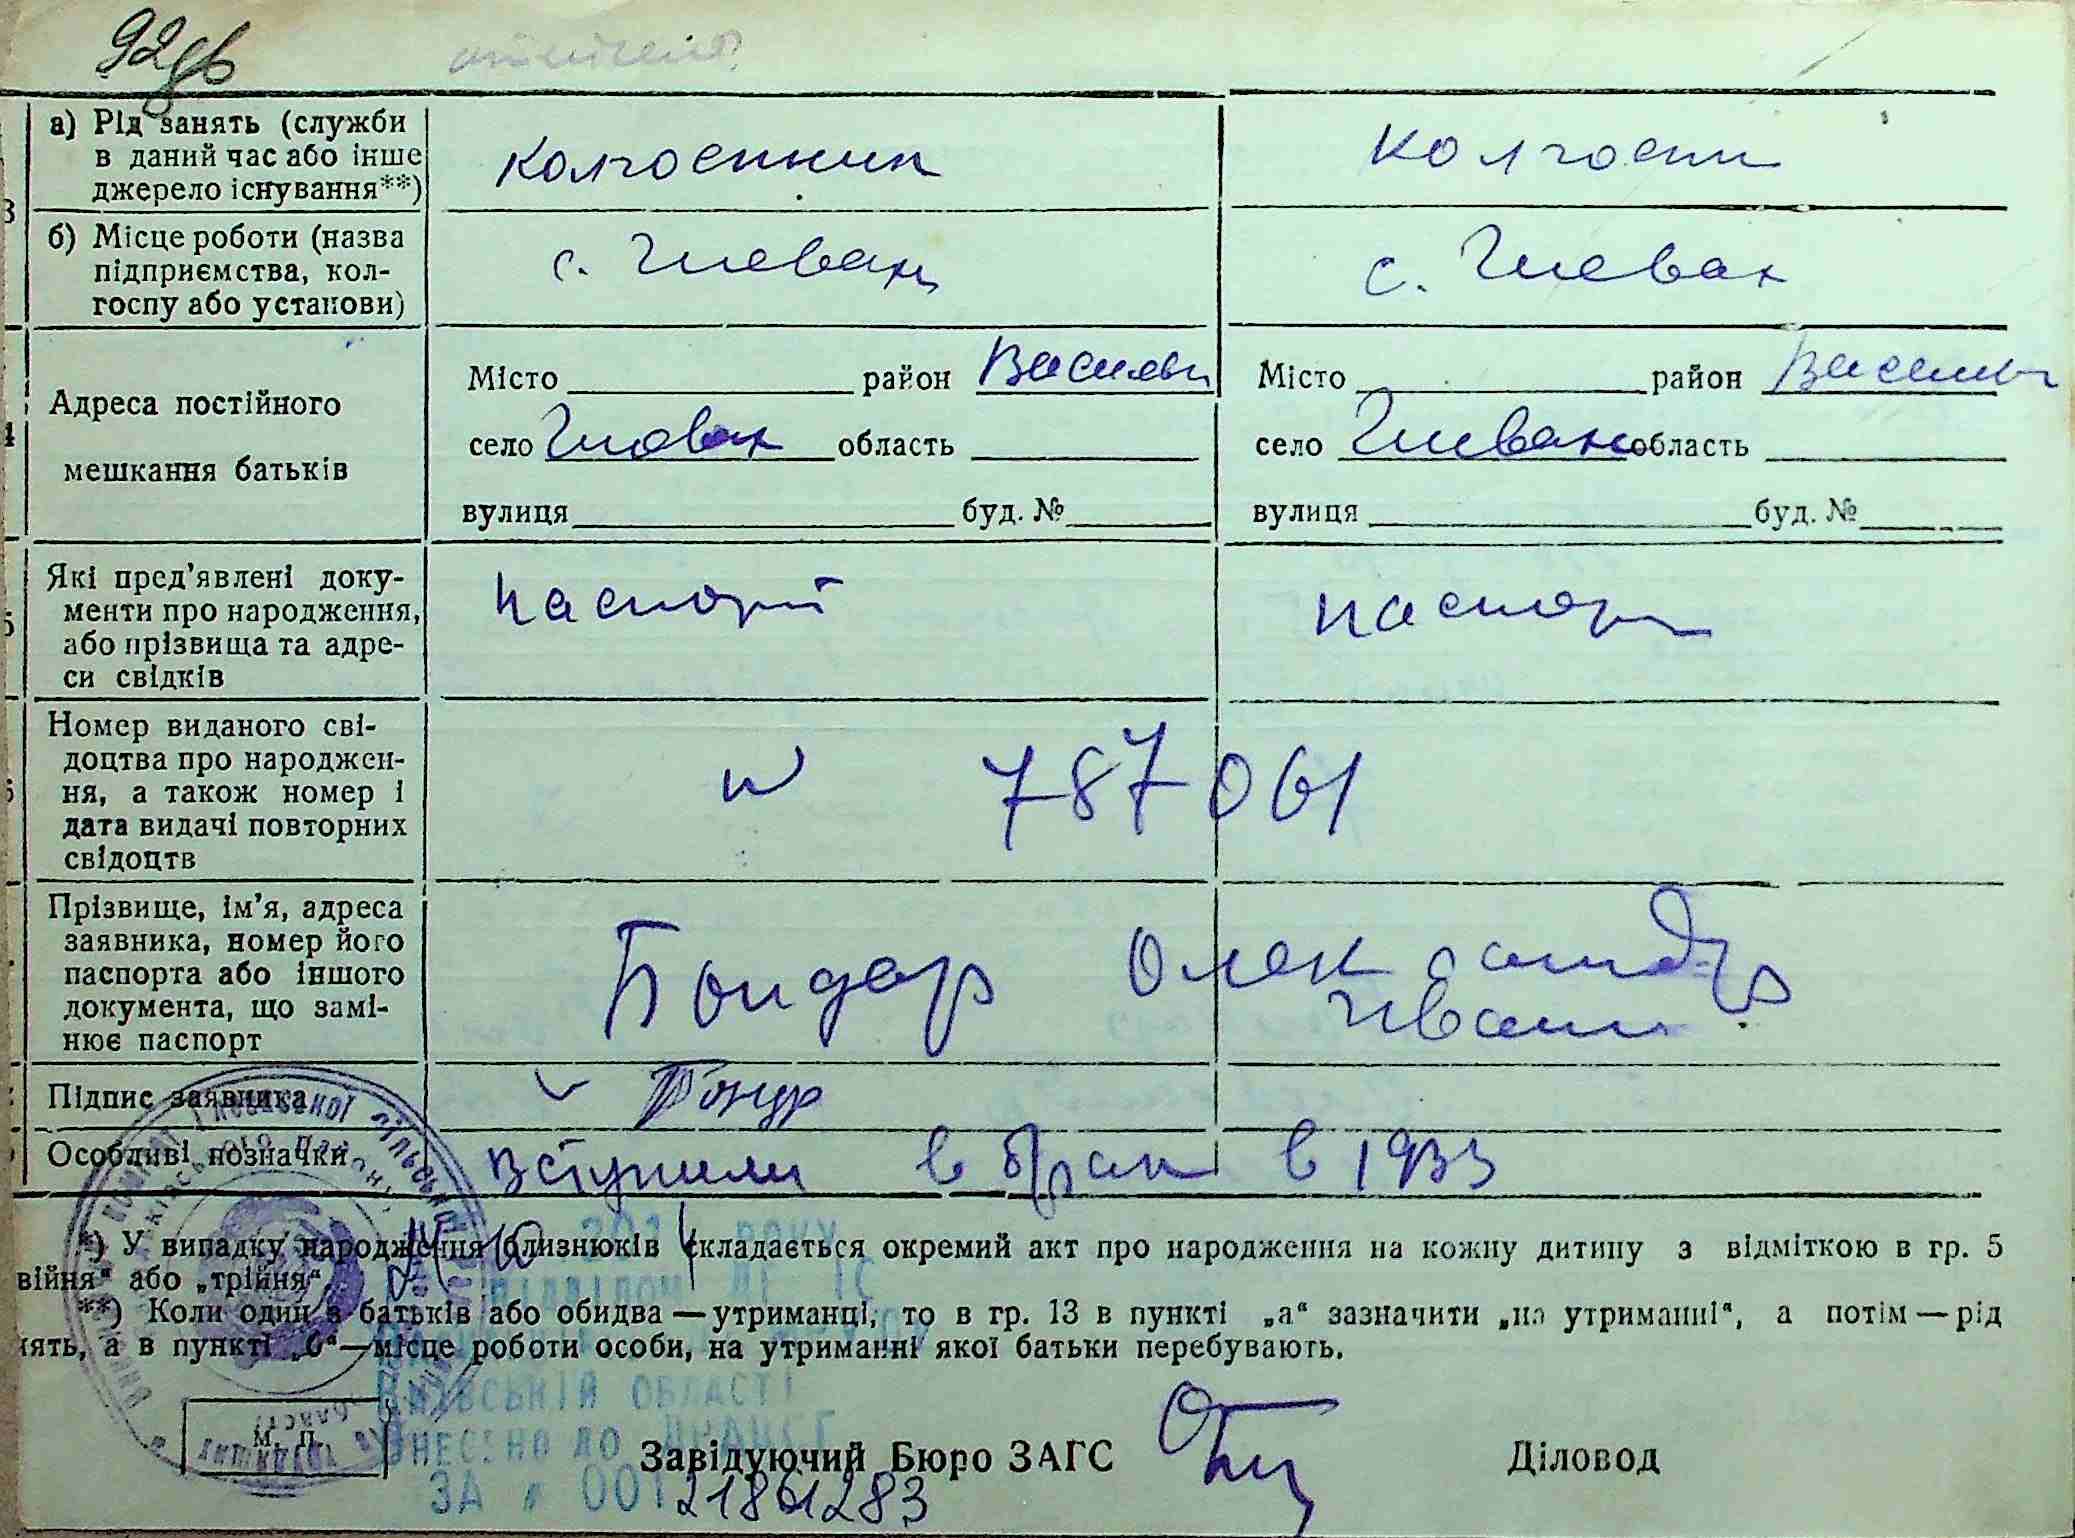 92
а) Рід занять (служби в даний час або інше джерело існування**)
колгоспник
колгосп
б) Місце роботи (назва підприємства, колгоспу або установи)
с. Глеван
с. Глеван
Адреса постійного мешкання батьків
Місто район Васильк
село Глеван область
вулиця буд. №
Місто район Васильк
село Глеван область
вулиця буд. №
Які пред'явлені документи про народження, або прізвища та адреси свідків
паспорт
паспор
Номер виданого свідоцтва про народження, а також номер і дата видачі повторних свідоцтв
№ 787061
Прізвище, ім'я, адреса заявника, номер його паспорта або іншого документа, що замінює паспорт
Бондар Олександр
Іван.
Підпис заявника
Особливі позначки
вступили в брак в 1933
*) У випадку народження близнюків складається окремий акт про народження на кожну дитину з відміткою в гр. 5
війня" або „трійня".
**) Коли один з батьків або обидва — утриманці, то в гр. 13 в пункті „а" зазначити „на утриманні", а потім — рід
нять, а в пункті „б"—місце роботи особи, на утриманні якої батьки перебувають.
КИЇВСЬКІЙ ОБЛАСТІ
ВНЕСЕНО ДО ДРАЦСГ
ЗА № 00121861283
М. П.
Завідуючий Бюро ЗАГС
Діловод